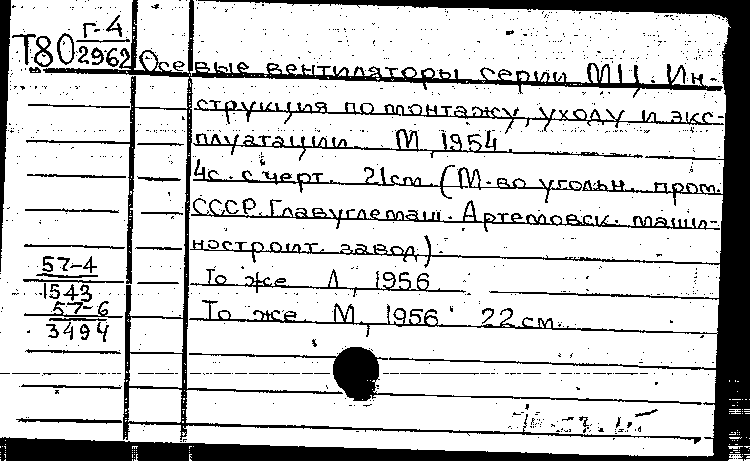 Г-4
Т80 2962 Осевые вентиляторы серии МЦ. Ин-
струкция по монтажу, уходу и экс-
плуатации М, 1954.
4с. с черт. 21см. (М-во угольн. пром.
СССР. Главуглемаш. Артемовск. маши-
ностроит. завод).
57-4
1543 То же Л, 1956
57-6
3494 То же М, 1956 22 см.